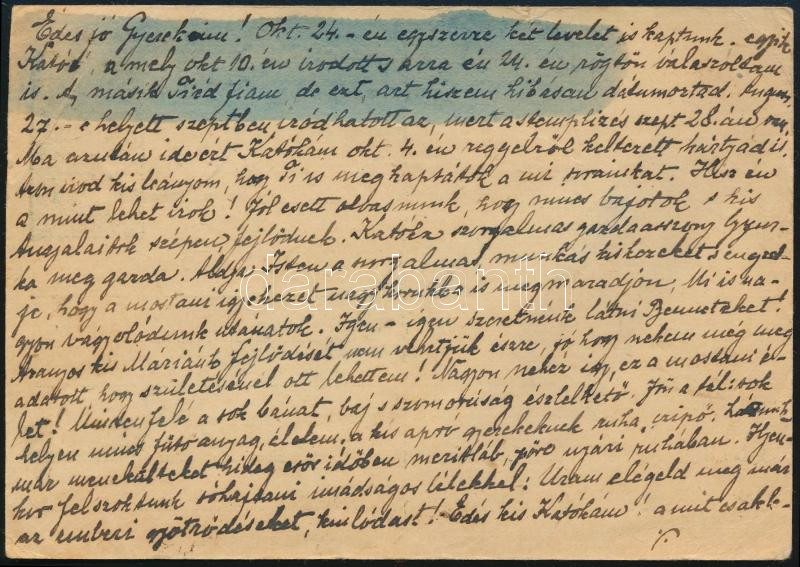 Édes jó Gyerekeim! Okt. 24.-én egyszerre két levelet is kaptunk. egyik
Katóé, a mely okt 10.én irodott s arra én 24.én rögtön válaszoltam
is. A másik Tiéd fiam de ezt, azt hiszem hibásan dátumoztad. Augus.
27.-e helyett szeptben irodhatott az, mert a stemplizés szept 28.án
Ma azután ideért Katókám okt. 4.én reggelről keltezett kártyád is.
Azon irod kis leányom, hogy Ti is megkaptátok a mi sorainkat. Hisz én
a mint lehet irok! Jól esett olvasnunk, hogy nincs bajotok s kis
Angyalaitok szépen fejlődnek. Katóka szorgalmas gazdaasszony Gyur-
ka meg gazda. Áldja Isten a szorgalmas, munkás kis kezeket s enged-
je, hogy a mostani igyekezet nagykorukba is megmaradjon. Mi is na-
gyon vágyolódunk utánatok. Igen - igen szeretnénk látni Benneteket!
Aranyos kis Máriánk fejlődését nem vehetjük észre, jó hogy nekem még meg
adatott hogy születésénél ott lehettem! Nagyon nehéz így, ez a mostani él-
let! Mindenfelé a sok bánat, baj s szomorúság észlelhető. Jön a tél, sok
helyen nincs fűtőanyag, élelem, a kis apró gyerekeknek ruha, cipő,
már menekülteket hideg esős időben meztitláb, nyári ruhában. Ilyen-
kor felszoktunk sóhajtani imádságos lélekkel: Uram elégeld meg már
az emberi gyötrődéseket, kinlódást! Édes kis Katókám! a mit csak le-
./.
darabanth